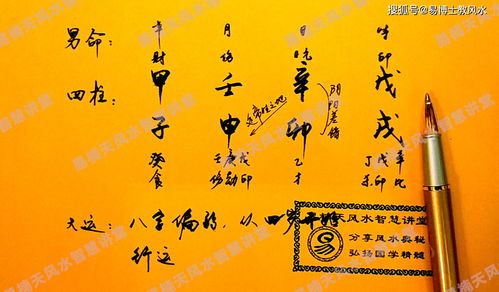 搜狐号@易博士教风水
年 月 日 时
男命: 财 伤 元 印
四柱: 甲 壬 辛 戊
子 申 卯 戌
癸食 壬伤 庚劫 戊印 乙才 丁杀 戊印 辛比
帝旺之地
阴阳差错
大运: 八字偏弱, 从四岁开始
行运
易
天风水智慧讲堂
分享风水奥秘
弘扬国学精髓
易楠天风水智慧讲堂